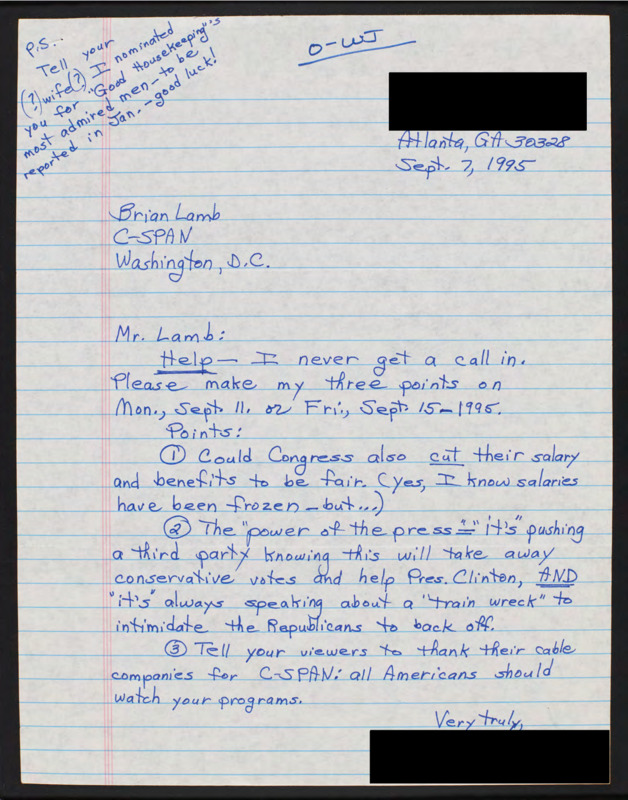 P.S...
Tell your
(?) wife(?) I nominated
you for "Good Housekeeping"'s
most admired men - to be
reported in Jan. - good luck!
O-WJ
Atlanta, GA 30328
Sept. 7, 1995
Brian Lamb
C-SPAN
Washington, D.C.
Mr. Lamb:
Help - I never get a call in.
Please make my three points on
Mon., Sept. 11. or Fri., Sept. 15-1995.
Points:
① Could Congress also cut their salary
and benefits to be fair. (yes, I know salaries
have been frozen - but...)
② The "power of the press" = "it's" pushing
a third party knowing this will take away
conservative votes and help Pres. Clinton, AND
"it's" always speaking about a "train wreck" to
intimidate the Republicans to back off.
③ Tell your viewers to thank their cable
companies for C-SPAN: all Americans should
watch your programs.
Very truly,